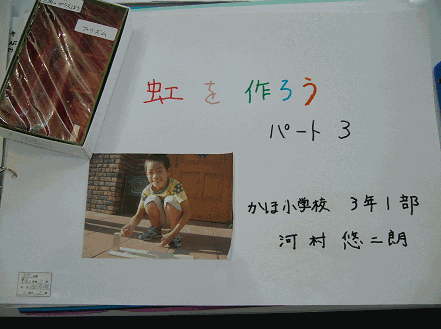 プリズム
虹を作ろう
パート 3
かほ小学校 3年1部
河村 悠二朗